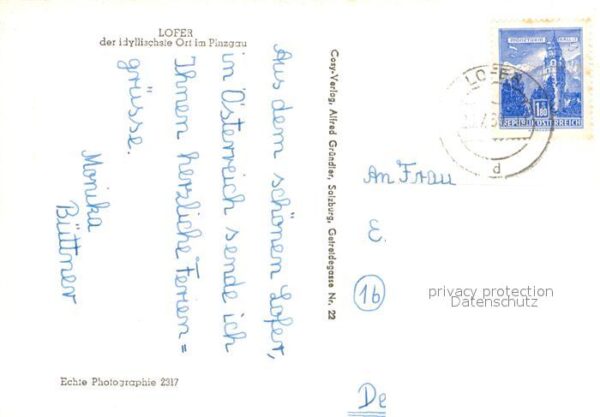 LOFER
der idyllischste Ort im Pinzgau
Aus dem schönen Lofer,
in Österreich sende ich
Ihnen herzliche Ferien=
grüsse.
Monika
Büttner
Echte Photographie 2317
Cosy-Verlag, Alfred Gründler, Salzburg, Getreidegasse Nr. 22
LOFER
d
1.80
REPUBLIK ÖSTERREICH
An Frau
E.
16
privacy protection
Datenschutz
De